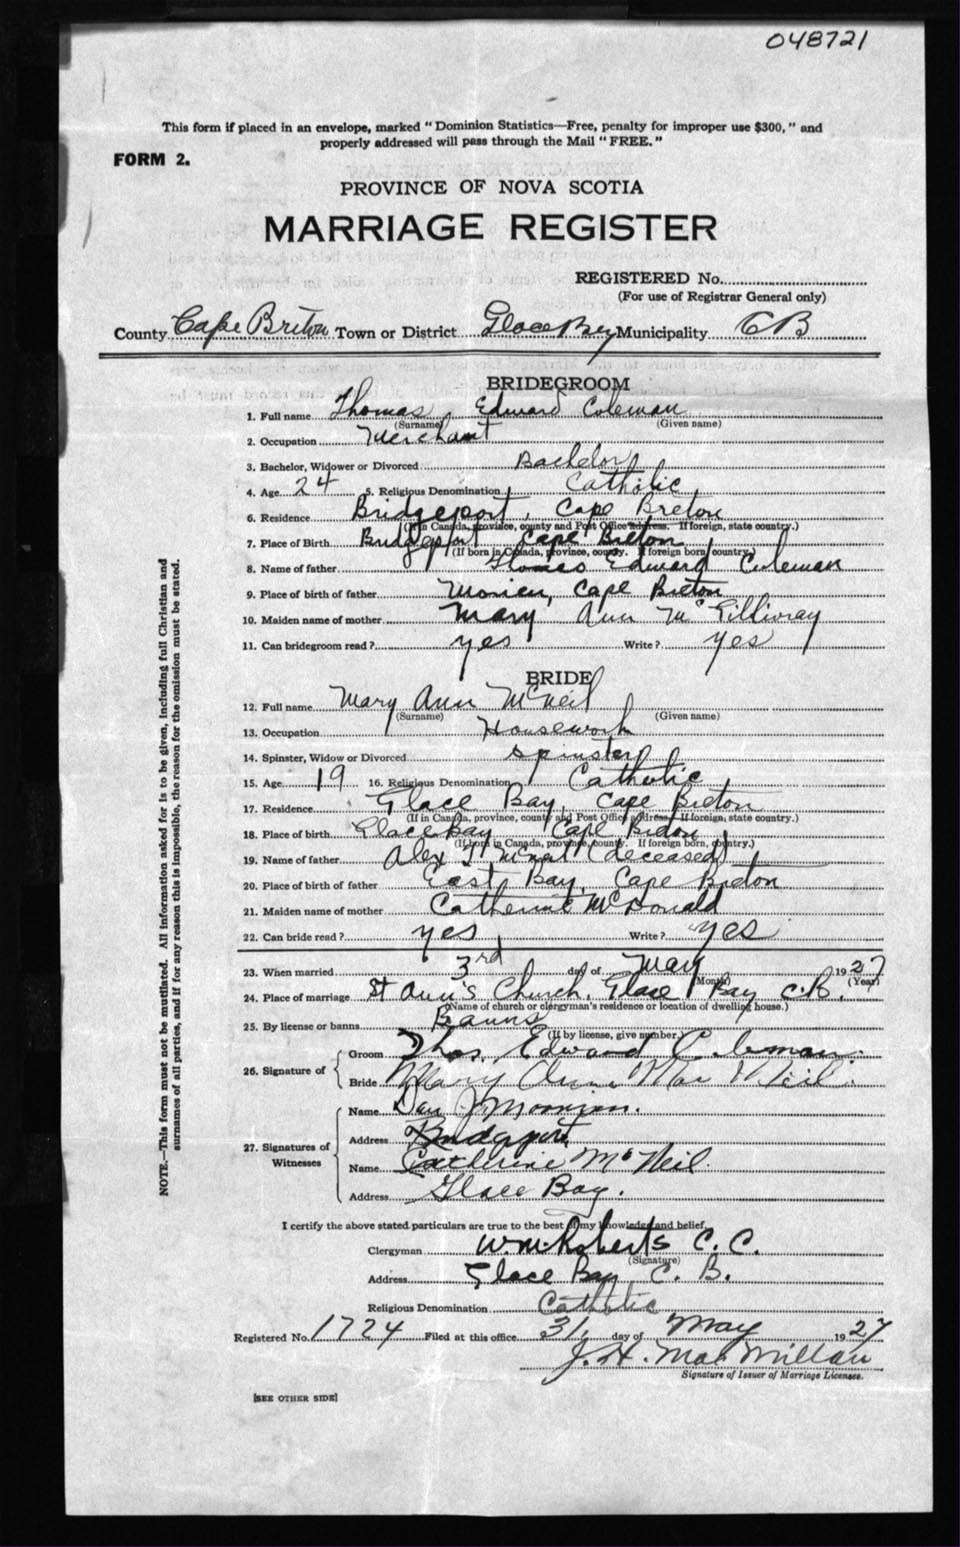 048721
This form if placed in an envelope, marked "Dominion Statistics—Free, penalty for improper use $300," and
properly addressed will pass through the Mail "FREE."
FORM 2.
PROVINCE OF NOVA SCOTIA
MARRIAGE REGISTER
REGISTERED No.
(For use of Registrar General only)
County Cape Breton Town or District Glace Bay Municipality CB
BRIDEGROOM
1. Full name Thomas Edward Coleman
(Surname) (Given name)
2. Occupation Merchant
3. Bachelor, Widower or Divorced Bachelor
4. Age 24 5. Religious Denomination Catholic
6. Residence Bridgeport, Cape Breton
(If in Canada, province, county and Post Office address. If foreign, state country.)
7. Place of Birth Bridgeport Cape Breton
(If born in Canada, province, county. If foreign born, country.)
8. Name of father Thomas Edward Coleman
9. Place of birth of father Morien, Cape Breton
10. Maiden name of mother Mary Ann McGillivray
11. Can bridegroom read? yes Write? yes
BRIDE
12. Full name Mary Ann McNeil
(Surname) (Given name)
13. Occupation Housework
14. Spinster, Widow or Divorced Spinster
15. Age 19 16. Religious Denomination Catholic
17. Residence Glace Bay, Cape Breton
(If in Canada, province, county and Post Office address. If foreign, state country.)
18. Place of birth Glace Bay Cape Breton
(If born in Canada, province, county. If foreign born, country.)
19. Name of father Alex J McNeil (deceased)
20. Place of birth of father East Bay, Cape Breton
21. Maiden name of mother Catherine McDonald
22. Can bride read? yes Write? yes
23. When married 3rd day of May 1927
(Month) (Year)
24. Place of marriage St Ann's Church, Glace Bay C.B.
(Name of church or clergyman's residence or location of dwelling house.)
25. By license or banns Banns
(If by license, give number.)
26. Signature of
Groom Thos. Edward Coleman.
Bride Mary Ann MacNeil.
27. Signatures of Witnesses
Name Dan J
Address Bridgeport
Name Catherine McNeil.
Address Glace Bay.
I certify the above stated particulars are true to the best of my knowledge and belief.
Clergyman W. M. Roberts C. C.
(Signature)
Address Glace Bay, C. B.
Religious Denomination Catholic
Registered No. 1724 Filed at this office 31, day of May 1927
J. H. MacMillan
Signature of Issuer of Marriage Licenses.
[SEE OTHER SIDE]
NOTE.—This form must not be mutilated. All information asked for is to be given, including full Christian and
surnames of all parties, and if for any reason this is impossible, the reason for the omission must be stated.